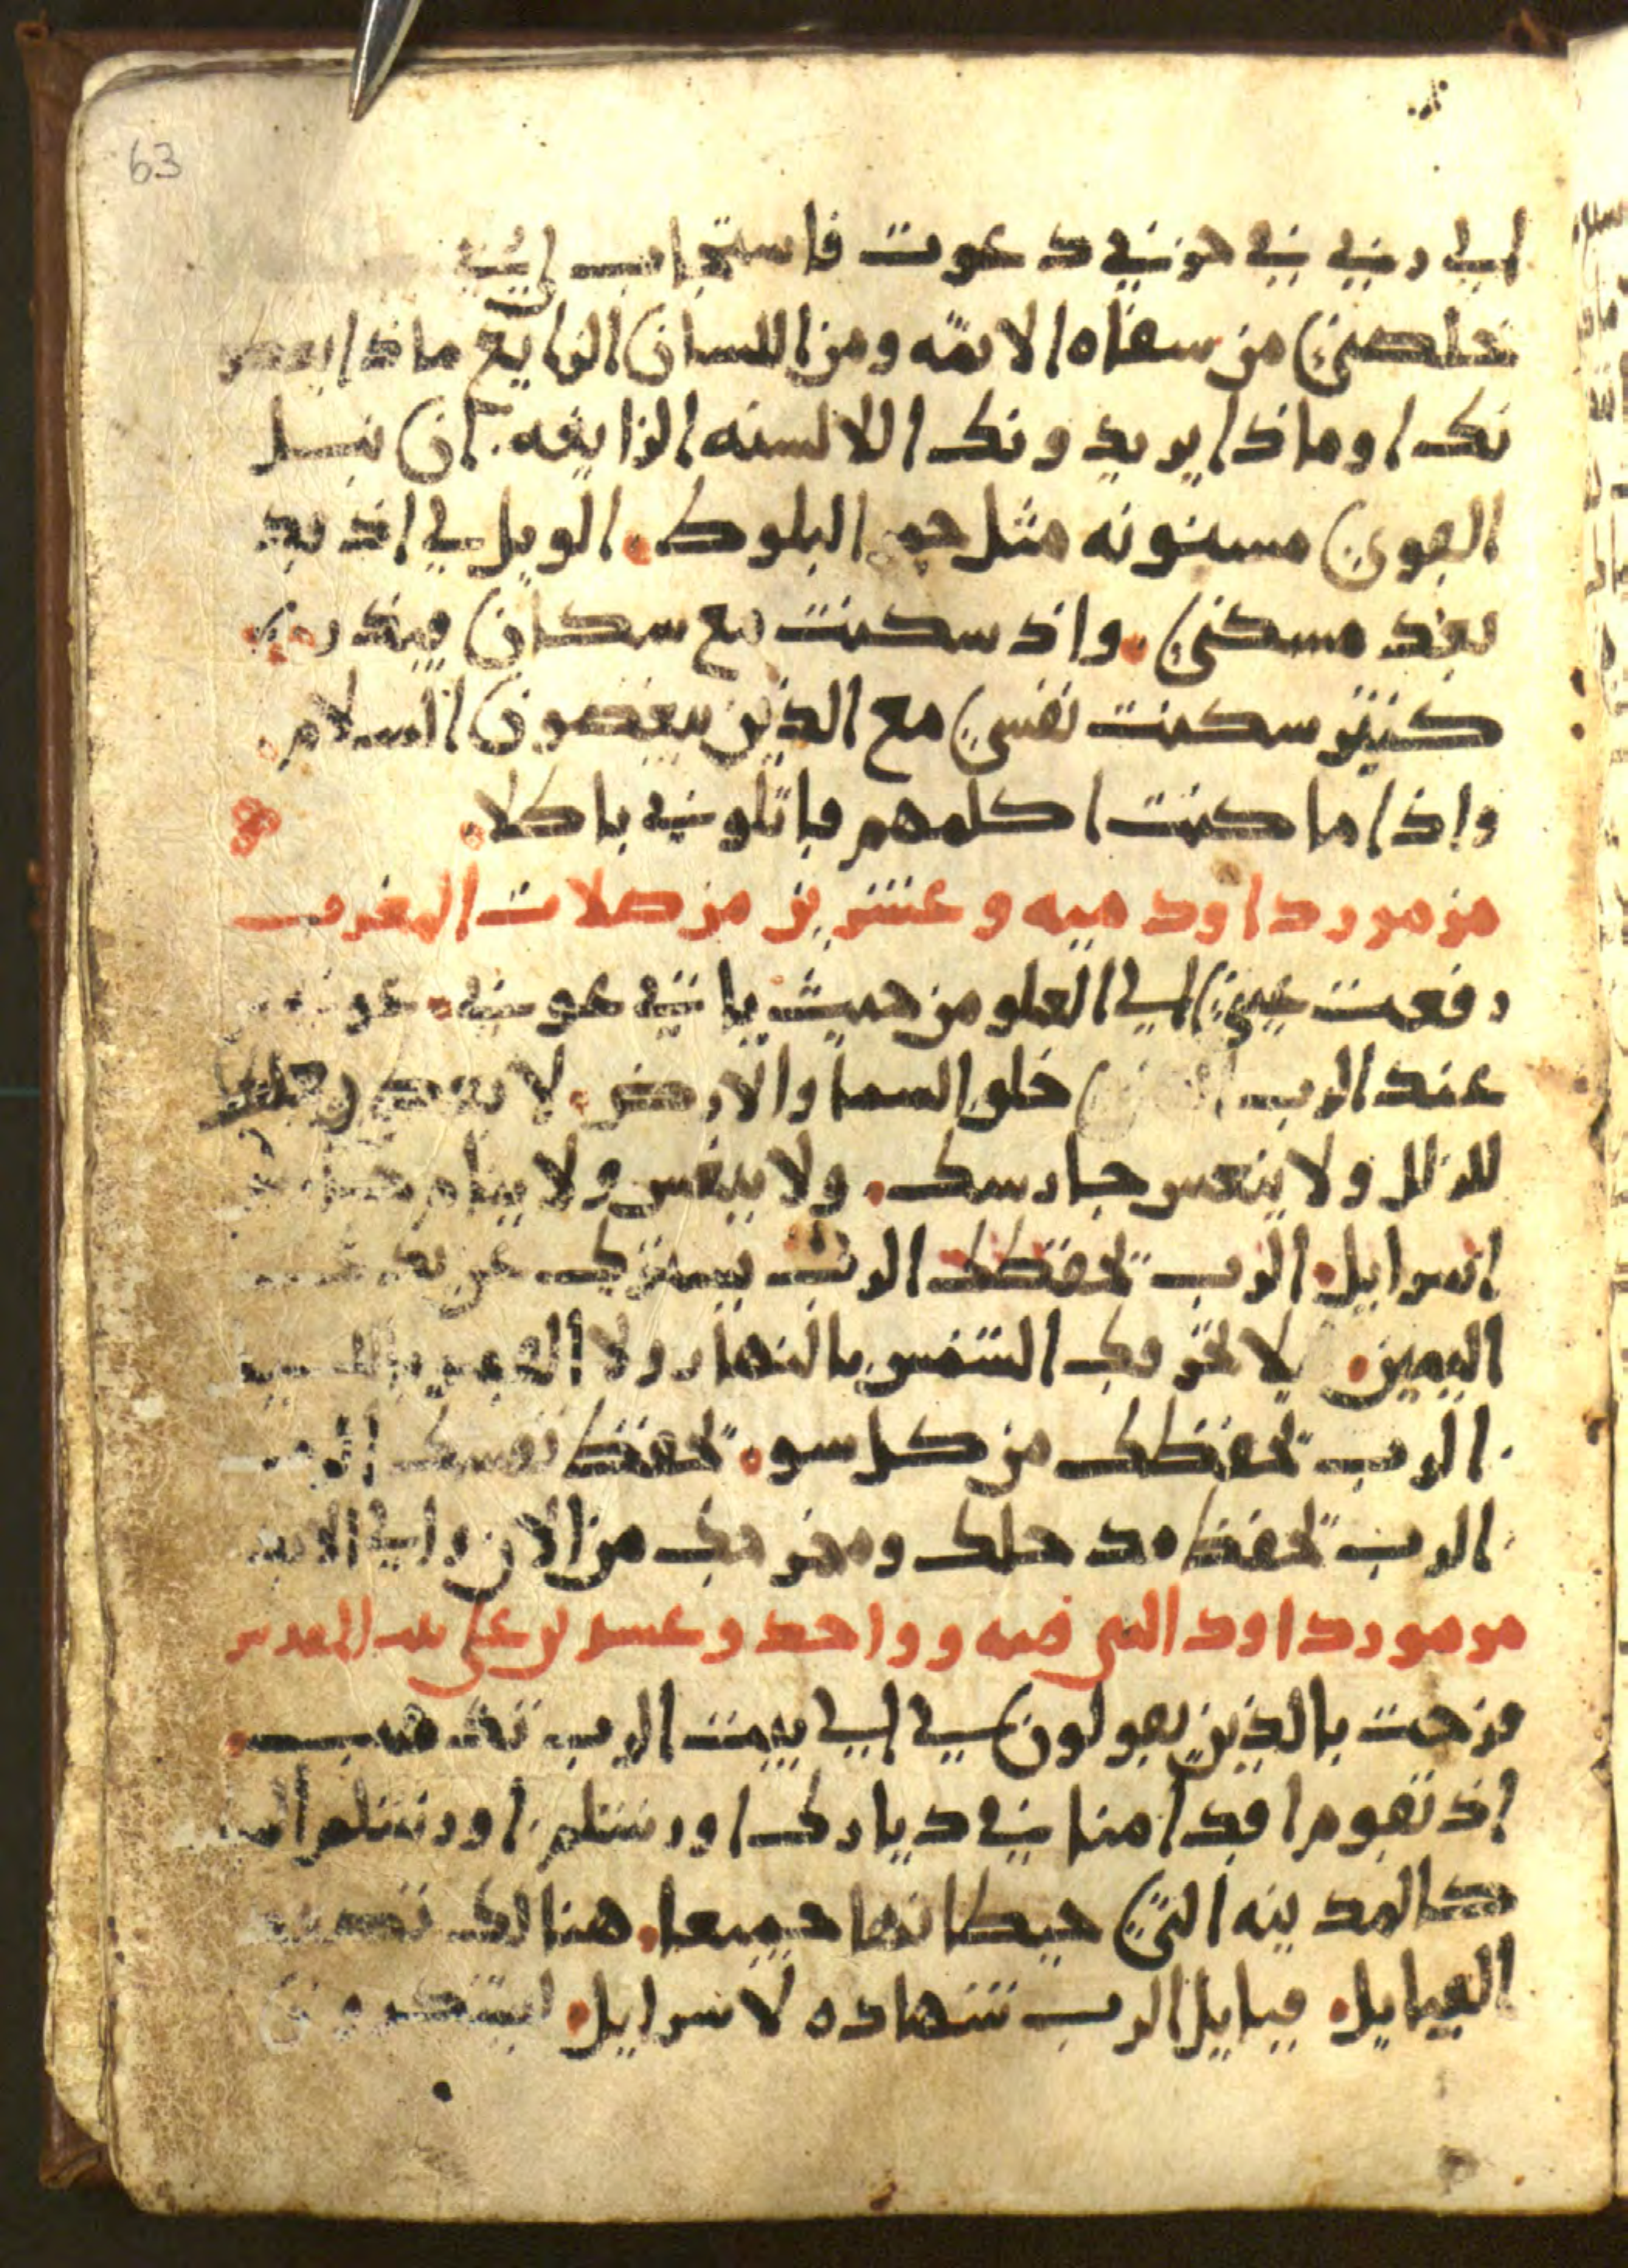 63
الى ربي في حزني دعوت فاستجاب لي
تخلصني من شفاه الاثمه ومن اللسان الزايغ ماذا يعطو
نك اوماذا يريدونك اللالسنه الزايغه. ان نبل
القوي مسنونه مثل جمر البلوط. الويل لي اذ بد
بعد مسكني. واذ سكنت مع سكان قيذر
كثير سكنت نفسي مع الذين يبغضون السلام
واذا ما كنت اكلمهم قاتلوني باطلا.
مزمور داود ميه وعشرين من صلات المغرب
رفعت عيني الى العلو من حيث ياتي عوني. عوني
عند الرب خلق السما والارض. لا يعط رجلك
للزلل ولا ينعس حارسك. ولا ينعس ولا ينام
اسرايل. الرب يحفظك الرب يسترك
اليمين. لا تحرقك الشمس بالنهار ولا القمر
الرب يحفظك من كل سو. يحفظ نفسك الرب
الرب يحفظ مدخلك ومخرجك من الان والى الابد
مزمور داود النبي ميه وواحد وعشرين على بيت المقدس
فرحت بالذين يقولون لي الى بيت الرب نذهب.
اذ تقوم اقدامنا في ديارك اورشلم. اورشلم
كالمدينه التي حيطانها جميعا. هنالك تصعد
القبايل. قبايل الرب شهاده لاسرايل. ليشكرون